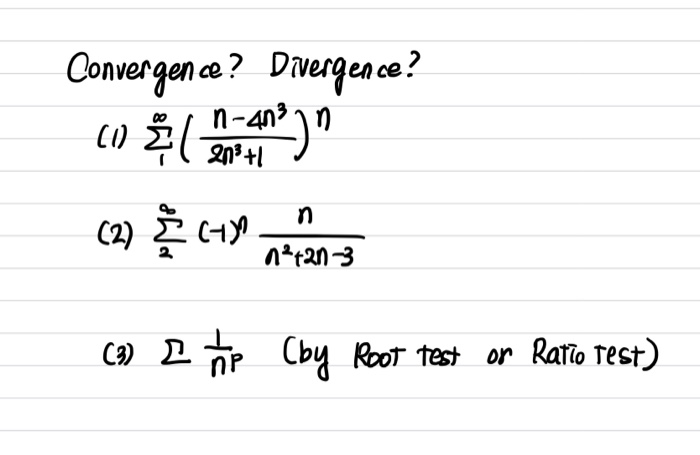 Convergence? Divergence?
(1) ∑_{1}^{∞} ( \frac{n-4n³}{2n³+1} )^n
(2) ∑_{2}^{∞} (-1)^n \frac{n}{n²+2n-3}
(3) ∑ \frac{1}{n^p} (by Root test or Ratio test)